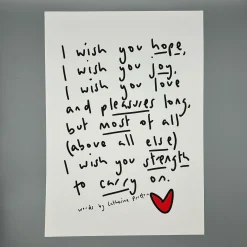 I wish you hope,
I wish you joy.
I wish you love
and pleasures long,
but most of all
(above all else)
I wish you strength
to carry on.
words by Catherine